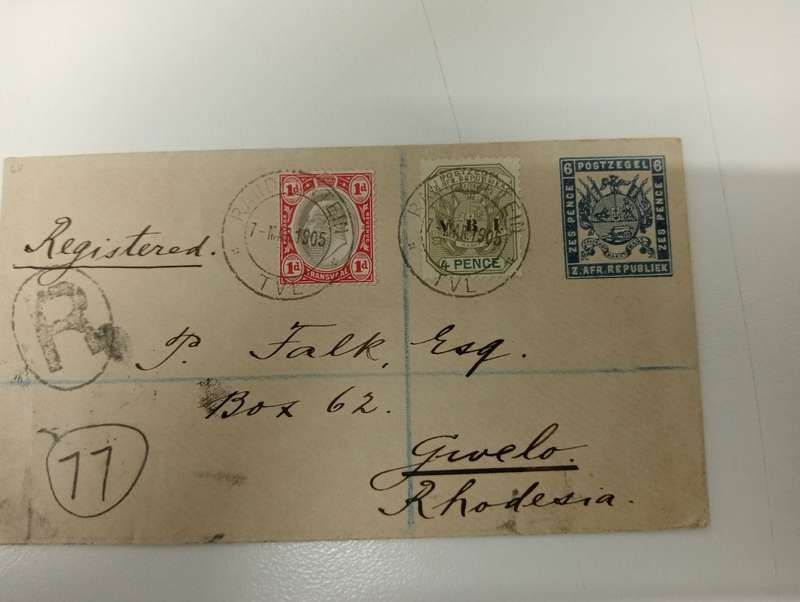 Registered.
R
1d 1d
1d 1d
TRANSVAAL
7-MAR 1905
TVL
POSTZEGEL
V.R.I.
4 PENCE
1905
TVL
6 POSTZEGEL 6
ZES PENCE
ZES PENCE
Z. AFR. REPUBLIEK
P. Falk, Esq.
Box 62.
Gwelo.
Rhodesia.
77